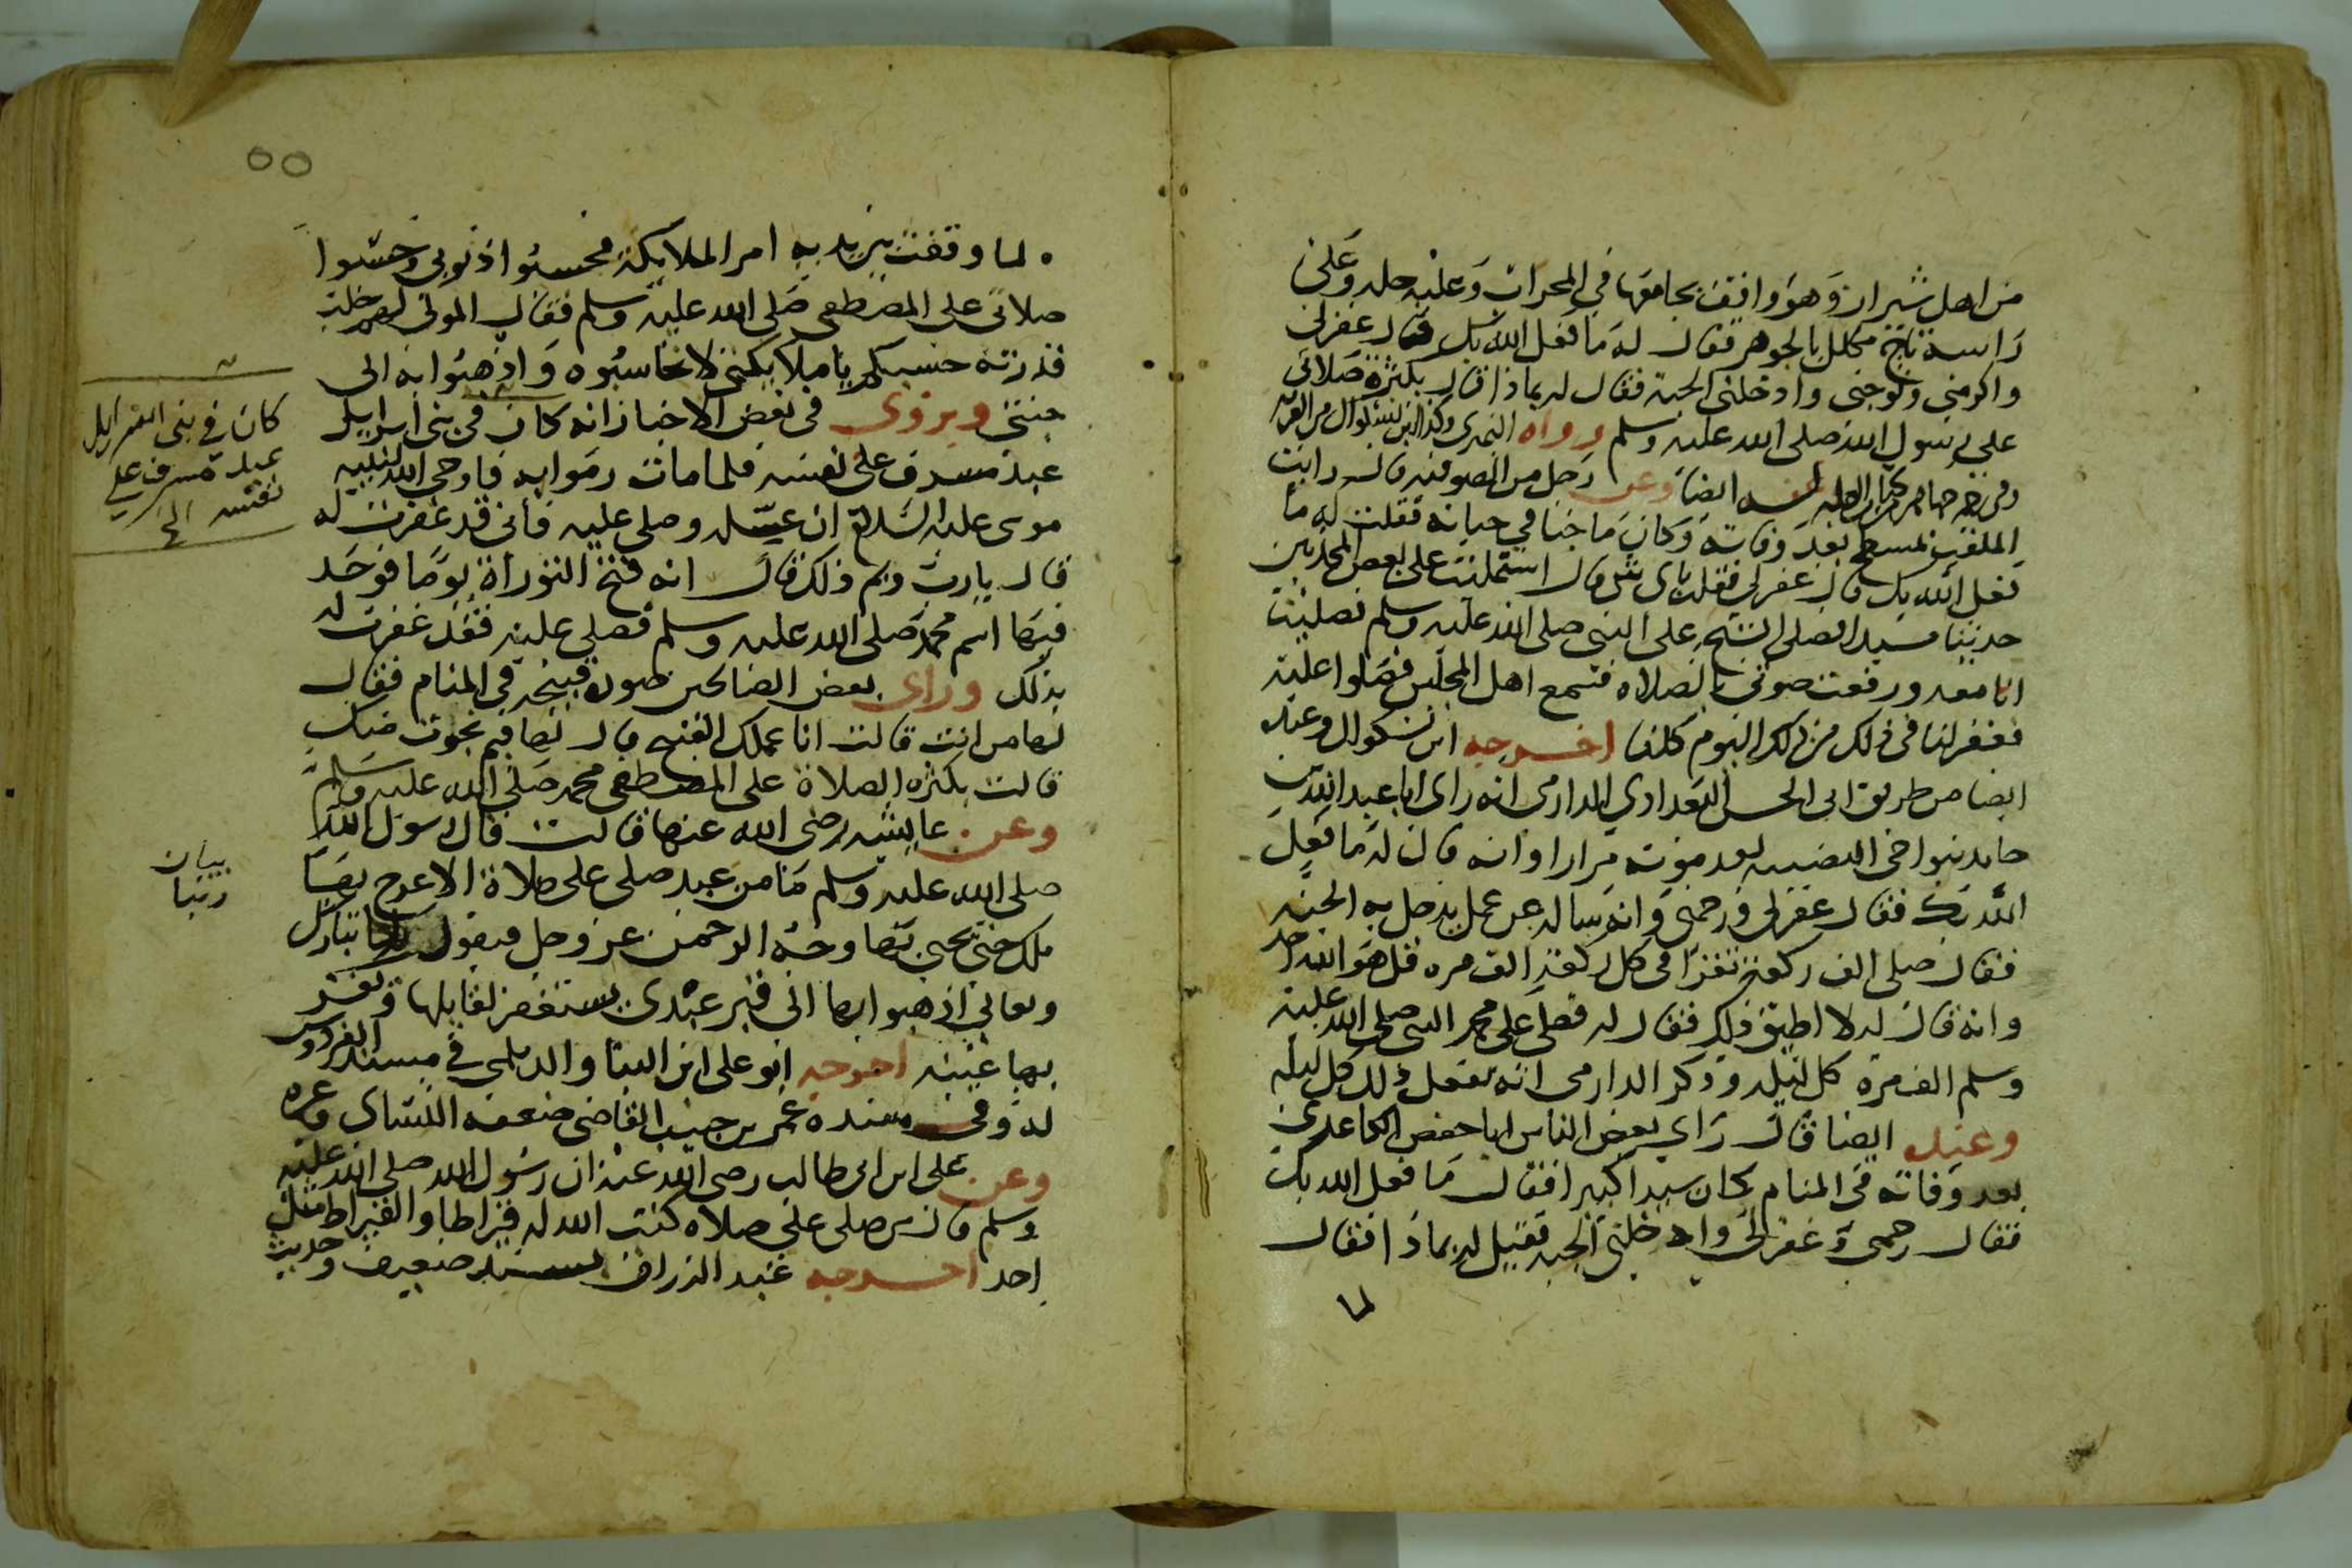 من اهل شيراز وهو واقف بجامعها في المحراب وعليه حله وعلى
راسه تاج مكلل بالجوهر فقال له ما فعل الله بك قال غفرلى
واكرمنى وتوجنى وادخلنى الجنة فقال له بماذا قال بكثرة صلاتى
على رسول الله صلى الله عليه وسلم رواه النميرى وكذا ابن بشكوال من القربه
ايضا وعن رجل من الصوفيه قال رايت
الملقب بمسطح بعد وفاته وكان ماجنا في حياته فقلت له ما
فعل الله بك قال غفر لي فقلت باى شى قال استمليت على بعض المحدثين
حديثا مسندا فصلى الشيخ على النبي صلى الله عليه وسلم فصليت
انا معه ورفعت صوتى بالصلاه فسمع اهل المجلس فصلوا عليه
فغفر لنا فى ذلك اليوم كلنا اخرجه ابن بشكوال وعنده
ايضا من طريق ابى الحسن البغدادي الدارمى انه راى ابا عبد الله بن
حامد بعد موته مرارا وانه قال له ما فعل
الله بك فقال غفر لى ورحمنى وانه ساله عن عمل يدخل به الجنه
فقال صلى الف ركعة تقرا في كل ركعة الف مره قل هو الله احد
وانه قال له لا اطيق ذلك فقال له فصلى على محمد النبى صلى الله عليه
وسلم الف مرة كل ليله وذكر الدارمى انه يفعل ذلك كل ليله
وعنده ايضا قال راى بعض الناس ابا حفص الكاغدى
بعد وفاته في المنام وكان سيدا كبيرا فقال ما فعل الله بك
فقال رحمنى وغفر لى وادخلنى الجنه فقيل له بماذا فقال
لما
٥٥
لما وقفت بين يديه امر الملايكة فحسبوا ذنوبى وحسبوا
صلاتى على المصطفى صلى الله عليه وسلم فقال المولى
قدرته حسبكم يا ملايكتى لا تحاسبوه واذهبوا به الى
جنتى ويروى فى بعض الاخبار انه كان فى بنى اسراييل
عبد مسرف على نفسه فلما مات رموا به فاوحى الله لنبيه
موسى عليه السلام ان غسله وصلى عليه فانى قد غفرت له
قال يا رب وبم ذلك قال انه فتح التوراة يوما فوجد
فيها اسم محمد صلى الله عليه وسلم فصلى عليه فقد غفرت له
بذلك وراى بعض الصالحين صورة قبيحة في المنام فقال
لها من انت قالت انا عملك القبيح قال لها فبم نجوت منك
قالت بكثره الصلاة على المصطفى محمد صلى الله عليه وسلم
وعن عايشه رضى الله عنها قالت قال رسول الله
صلى الله عليه وسلم ما من عبد صلى على صلاة الا عرج بها
ملك حتى يحيى بها وجه الرحمن عز وجل فيقول ربنا تبارك
وتعالى اذهبوا بها الى قبر عبدى يستغفر لقايلها وتقر
بها عينه اخرجه ابو على ابن البنا والديلمي في مسند الفردوس
له وفى سنده عمر بن حبيب القاضى ضعفه النسائى وغيره
وعن على ابن ابى طالب رضى الله عنه ان رسول الله صلى الله عليه
وسلم قال من صلى على صلاه كتب الله له قيراطا والقيراط مثل
احد اخرجه عبد الرزاق بسند ضعيف وحديث
كان في بنى اسراييل
عبد مسرف على
نفسه الخ